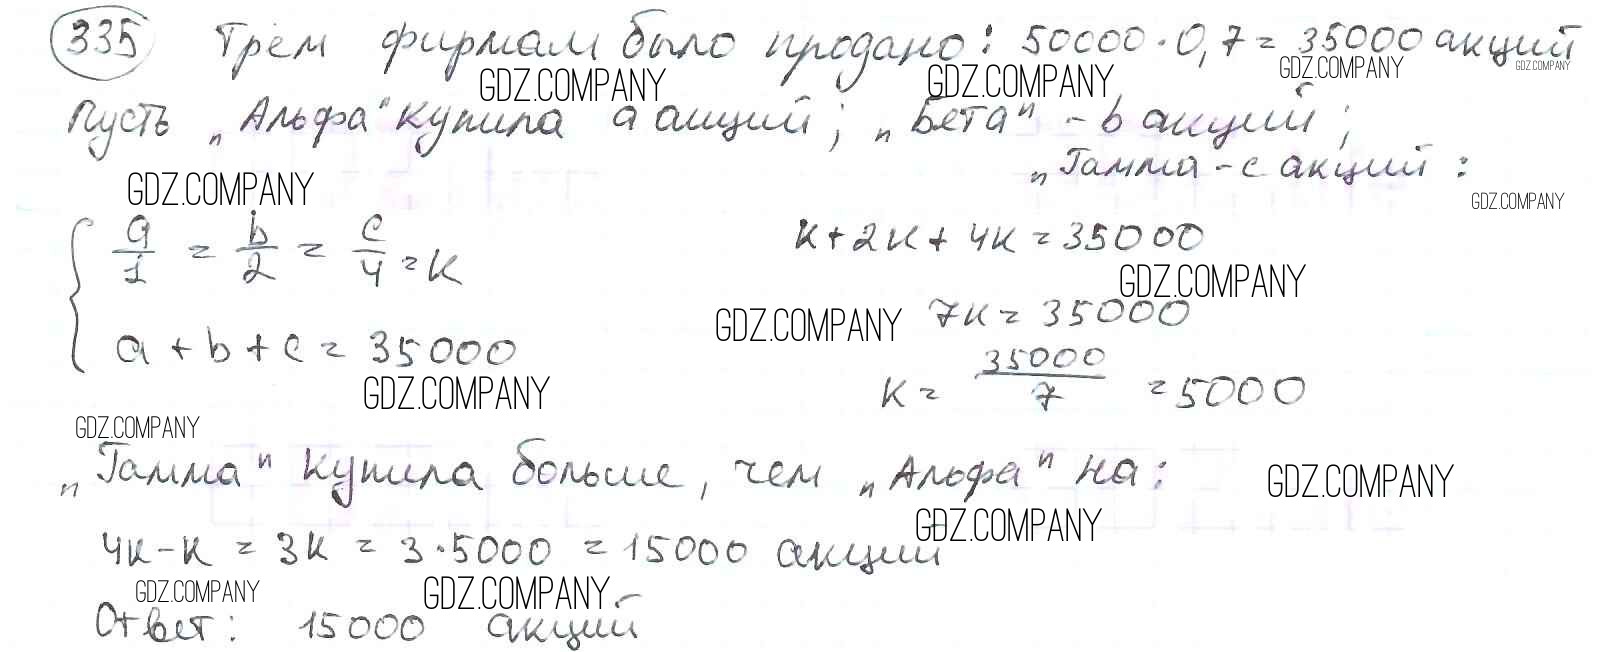 335 Трём фирмам было продано: 50000·0,7 = 35000 акций
GDZ.COMPANY GDZ.COMPANY GDZ.COMPANY GDZ.COMPANY
Пусть „Альфа" купила a акций; „Бета" – b акций;
„Гамма – c акций:
GDZ.COMPANY GDZ.COMPANY
a/1 = b/2 = c/4 = k
k + 2k + 4k = 35000
GDZ.COMPANY
GDZ.COMPANY 7k = 35000
a + b + c = 35000
k = 35000/7 = 5000
GDZ.COMPANY
GDZ.COMPANY
„Гамма" купила больше, чем „Альфа" на:
GDZ.COMPANY
GDZ.COMPANY
4k – k = 3k = 3·5000 = 15000 акций
GDZ.COMPANY GDZ.COMPANY
Ответ: 15000 акций